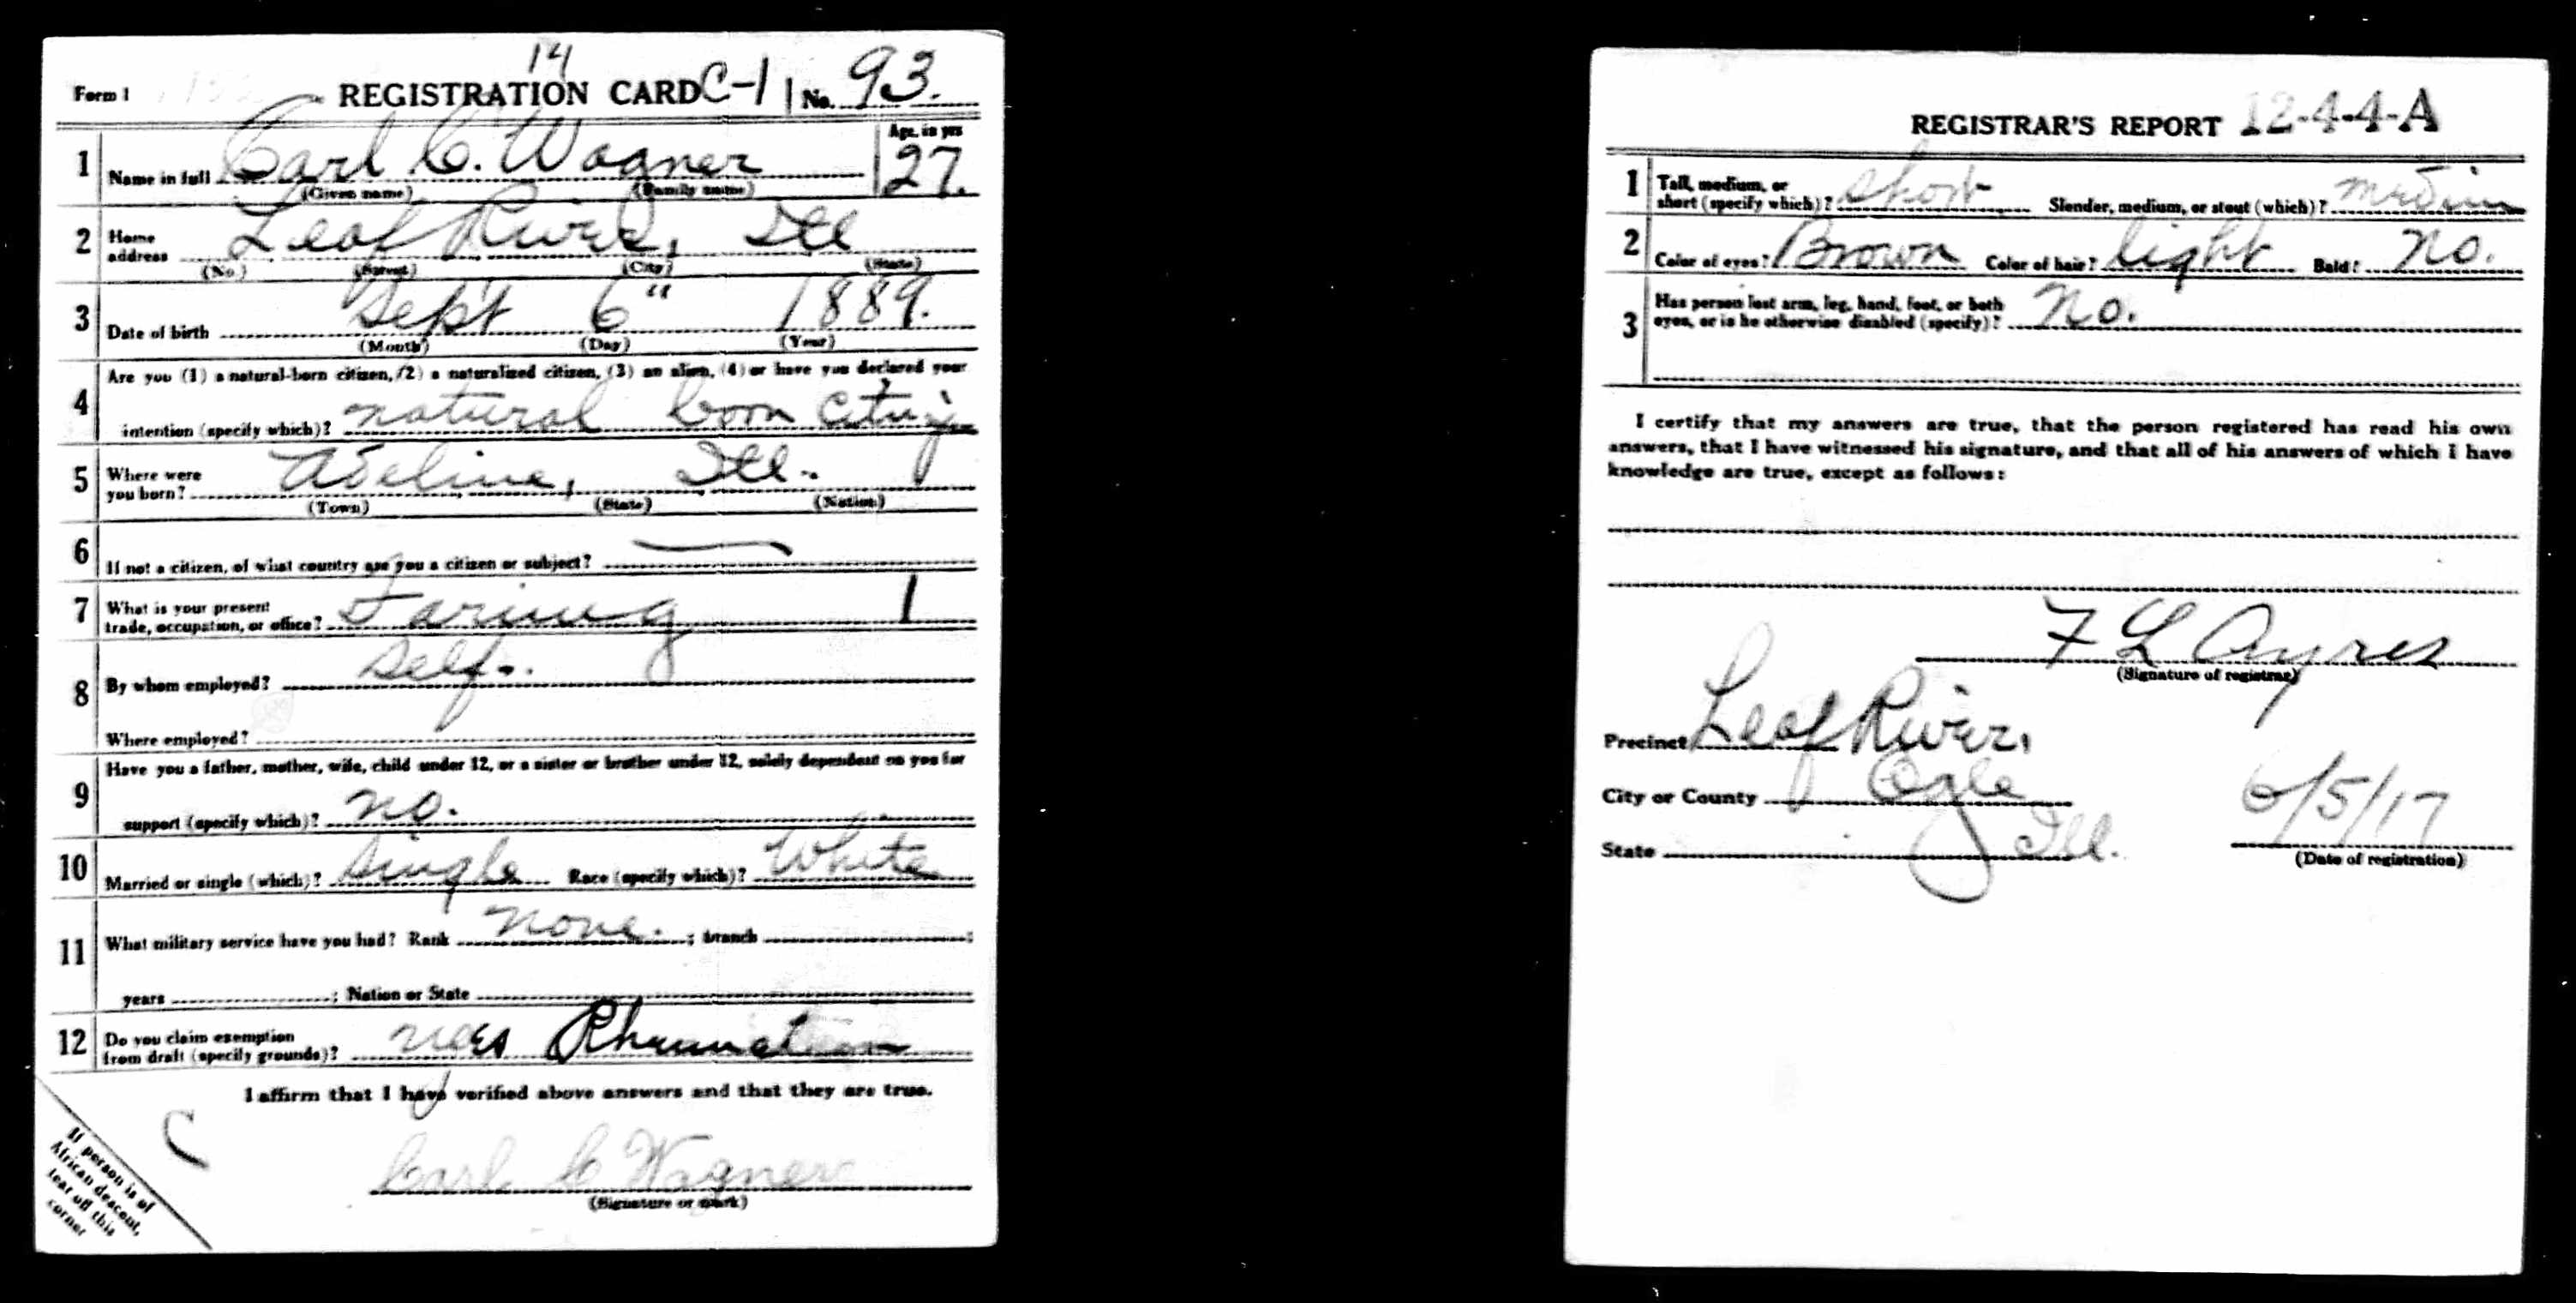 14
Form 1 REGISTRATION CARD C-1 No. 93.
Age, in yrs
1 Name in full Carl C. Wagner 27.
(Given name) (Family name)
2 Home address Leaf River, Ill
(No.) (Street) (City) (State)
3 Date of birth Sept 6" 1889.
(Month) (Day) (Year)
4 Are you (1) a natural-born citizen, (2) a naturalized citizen, (3) an alien, (4) or have you declared your
intention (specify which)? natural born
5 Where were you born? Adeline, Ill.
(Town) (State) (Nation)
6 If not a citizen, of what country are you a citizen or subject? —
7 What is your present trade, occupation, or office? Farming 1
8 By whom employed? Self.
Where employed?
9 Have you a father, mother, wife, child under 12, or a sister or brother under 12, solely dependent on you for
support (specify which)? no.
10 Married or single (which)? Single Race (specify which)? White
11 What military service have you had? Rank none. ; branch ;
years ; Nation or State
12 Do you claim exemption from draft (specify grounds)? Rheumatism
I affirm that I have verified above answers and that they are true.
C
Carl C Wagner
(Signature or mark)
If person is of
African descent,
tear off this
corner
REGISTRAR'S REPORT 12-4-4-A
1 Tall, medium, or short (specify which)? Short Slender, medium, or stout (which)? medium
2 Color of eyes? Brown Color of hair? light Bald? No.
3 Has person lost arm, leg, hand, foot, or both
eyes, or is he otherwise disabled (specify)? No.
I certify that my answers are true, that the person registered has read his own
answers, that I have witnessed his signature, and that all of his answers of which I have
knowledge are true, except as follows:
F L Ayres
(Signature of registrar)
Precinct Leaf River,
City or County Ogle
State Ill.
6/5/17
(Date of registration)